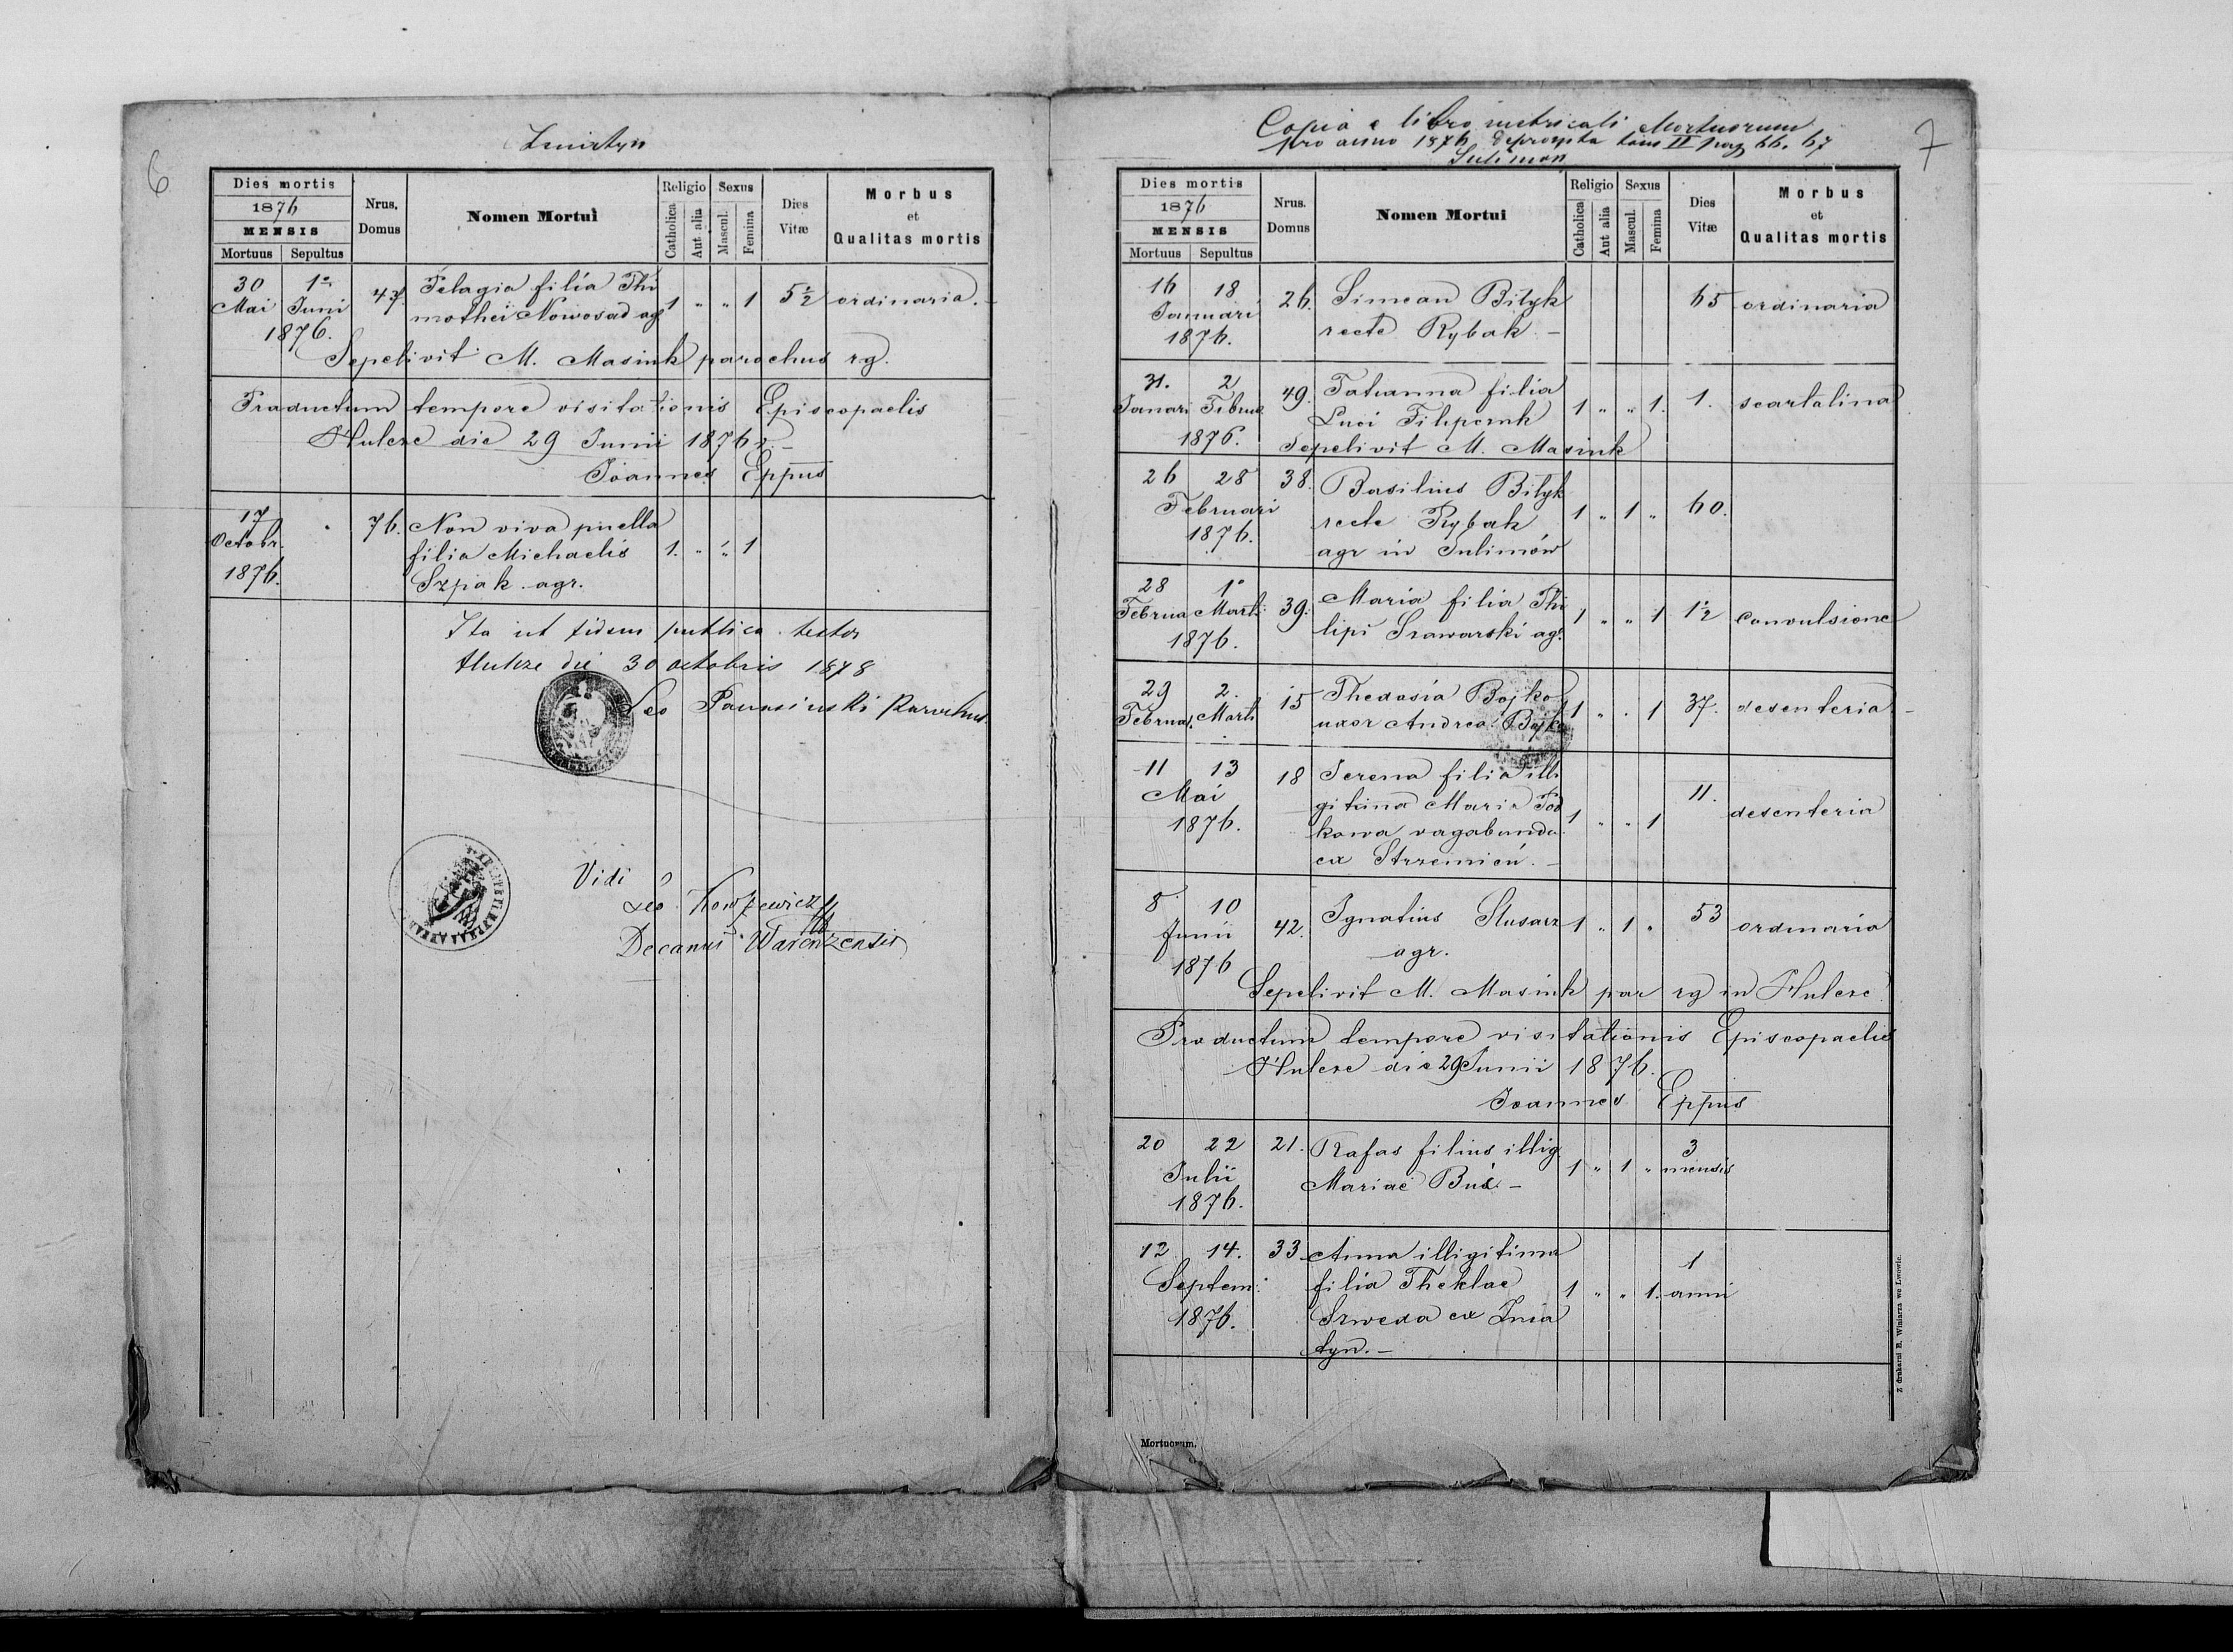 6
Żniatyn
Dies mortis
1876
MENSIS
Mortuus Sepultus
Nrus. Domus
Nomen Mortui
Religio
Catholica Aut alia
Sexus
Mascul. Femina
Dies Vitæ
Morbus et Qualitas mortis
30 1º 47. Pelagia filia Thi 1 " " 1 5½ ordinaria.
Mai Juni mothei Nowosad ag
1876.
Sepelivit M. Masiuk parochus rg.
Productum tempore visitationis Episcopaelis
Hulcze die 29 Junii 1876 r. –
Joannes Eppus
17 76. Non viva puella
Octobr. filia Michaelis 1. " " 1
1876. Szpak agr.
Ita ut fidem publica testor
Hulcze die 30 octobris 1878
Leo Parochus
Vidi
Leo
Decanus Warenzensis
7
Copia e libro metricali Mortuorum
pro anno 1876 deprompta tom II pag 66. 67
Sulimow
Dies mortis
1876
MENSIS
Mortuus Sepultus
Nrus. Domus
Nomen Mortui
Religio
Catholica Aut alia
Sexus
Mascul. Femina
Dies Vitæ
Morbus et Qualitas mortis
16 18 26. Simeon Bilyk 65 ordinaria
Januari recte Rybak –
1876.
31. 2 49. Tatianna filia 1 " " 1. 1. scarlatina
Januari Februa Luci
1876. Sepelivit M. Masiuk
26 28 38. Basilius Bilyk
Februari recte Rybak 1 " 1 " 60.
1876. agr in Sulimów
28 1º 39. Maria filia Phi 1 " " 1 1½ convulsione
Februa Marti lipi agr.
1876.
29 2. 15 Thedosia Bojko 1 " . 1 37. desenteria –
Februar. Marti uxor Andrea Bojko
11 13 18 Serena filia illi 11.
Mai gitima Maria desenteria
1876. kowa vagabunda 1 " " 1
ex Strzemień. –
8 10 42. Ignatius Slusarz 1 " 1 " 53 ordinaria
Junii agr.
1876
Sepelivit M. Masiuk par rg in Hulcze
Productum tempore visitationis Episcopaelis
Hulcze die 29 Junii 1876.
Joannes Eppus
20 22 21. Rafas filius illig 1 " 1 " 3 mensis
Julii Mariae –
1876.
12 14. 33 Anna illigitima 1
Septem: filia Theklae 1 " " 1. anni
1876. Szweda ex Żnia
tyn. –
Mortuorum.
Z drukarni E. Winiarza we Lwowie.